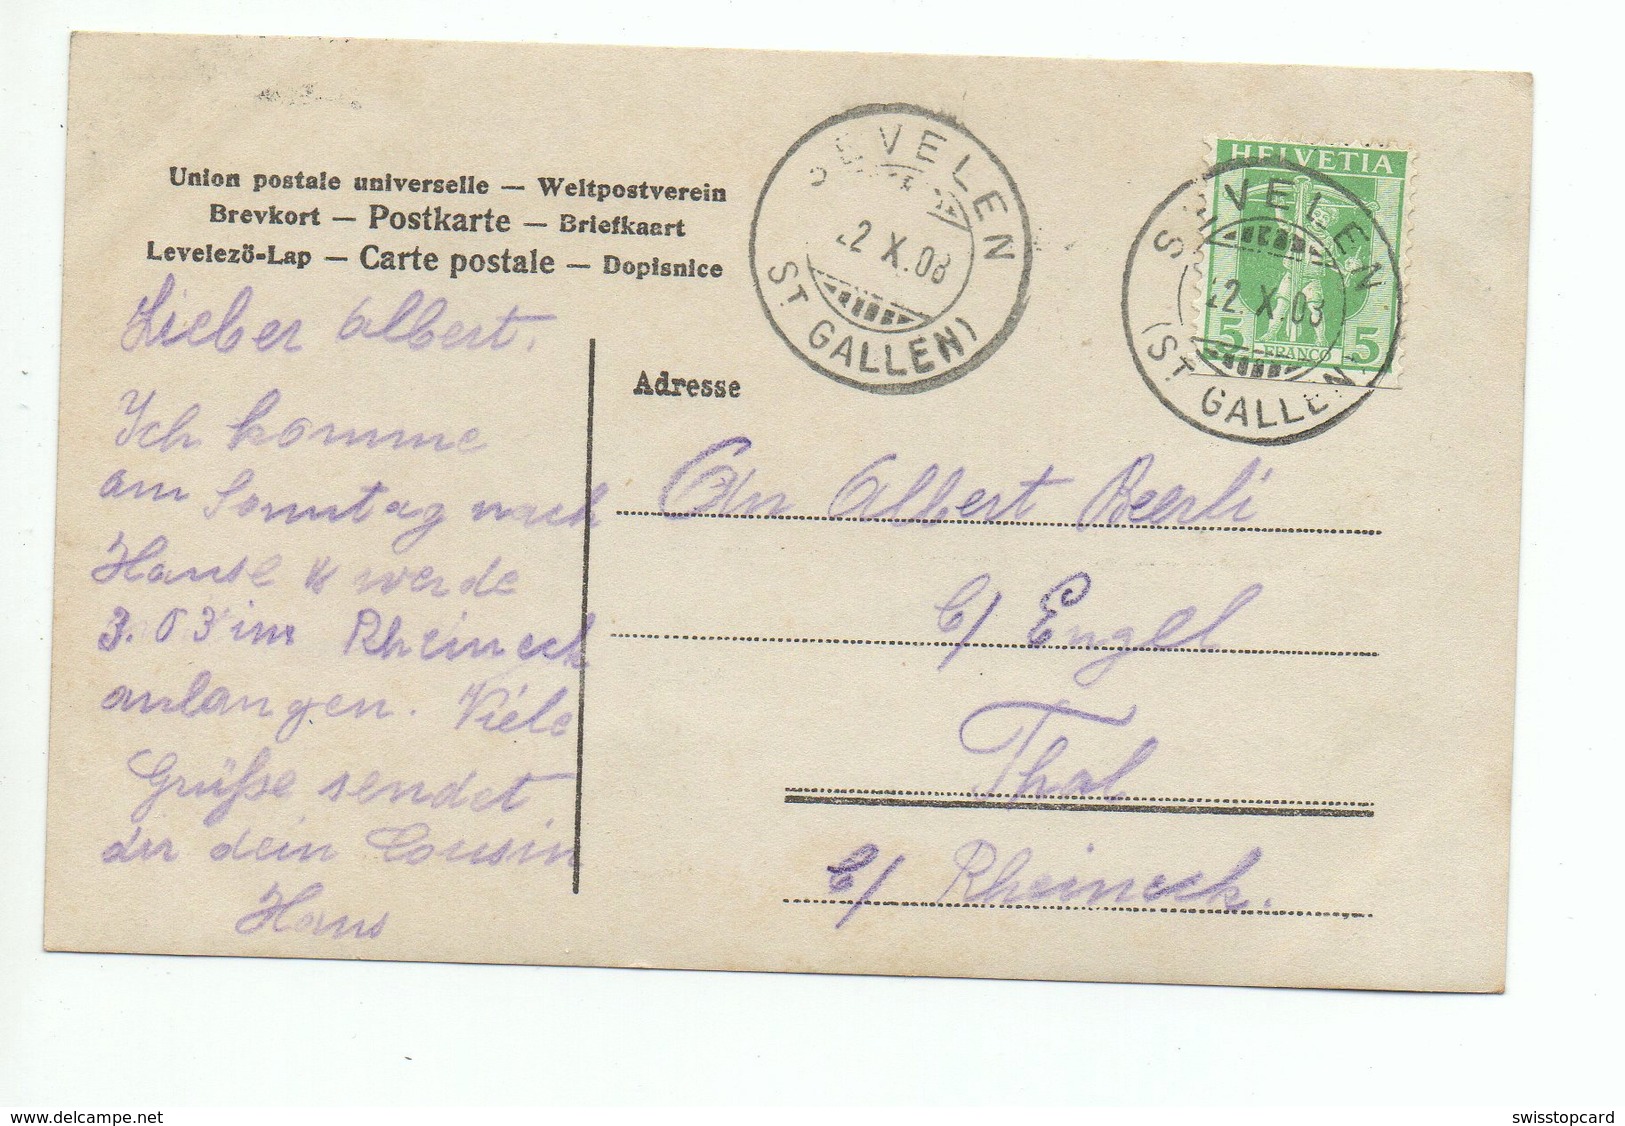 Union postale universelle — Weltpostverein
Brevkort — Postkarte — Briefkaart
Levelezö-Lap — Carte postale — Dopisnice
Lieber Albert.
Ich komme
am Sonntag nach
Hause & werde
3.03 in Rheineck
anlangen. Viele
Grüße sendet
dir dein Cousin
Hans
SEVELEN
22 X.08
(ST GALLEN)
HELVETIA
5 FRANCO 5
SEVELEN
22.X.08
(ST GALLEN)
Adresse
An Albert Beerli
b/ Engel
Thal
b/ Rheineck.
www.delcampe.net
swisstopcard